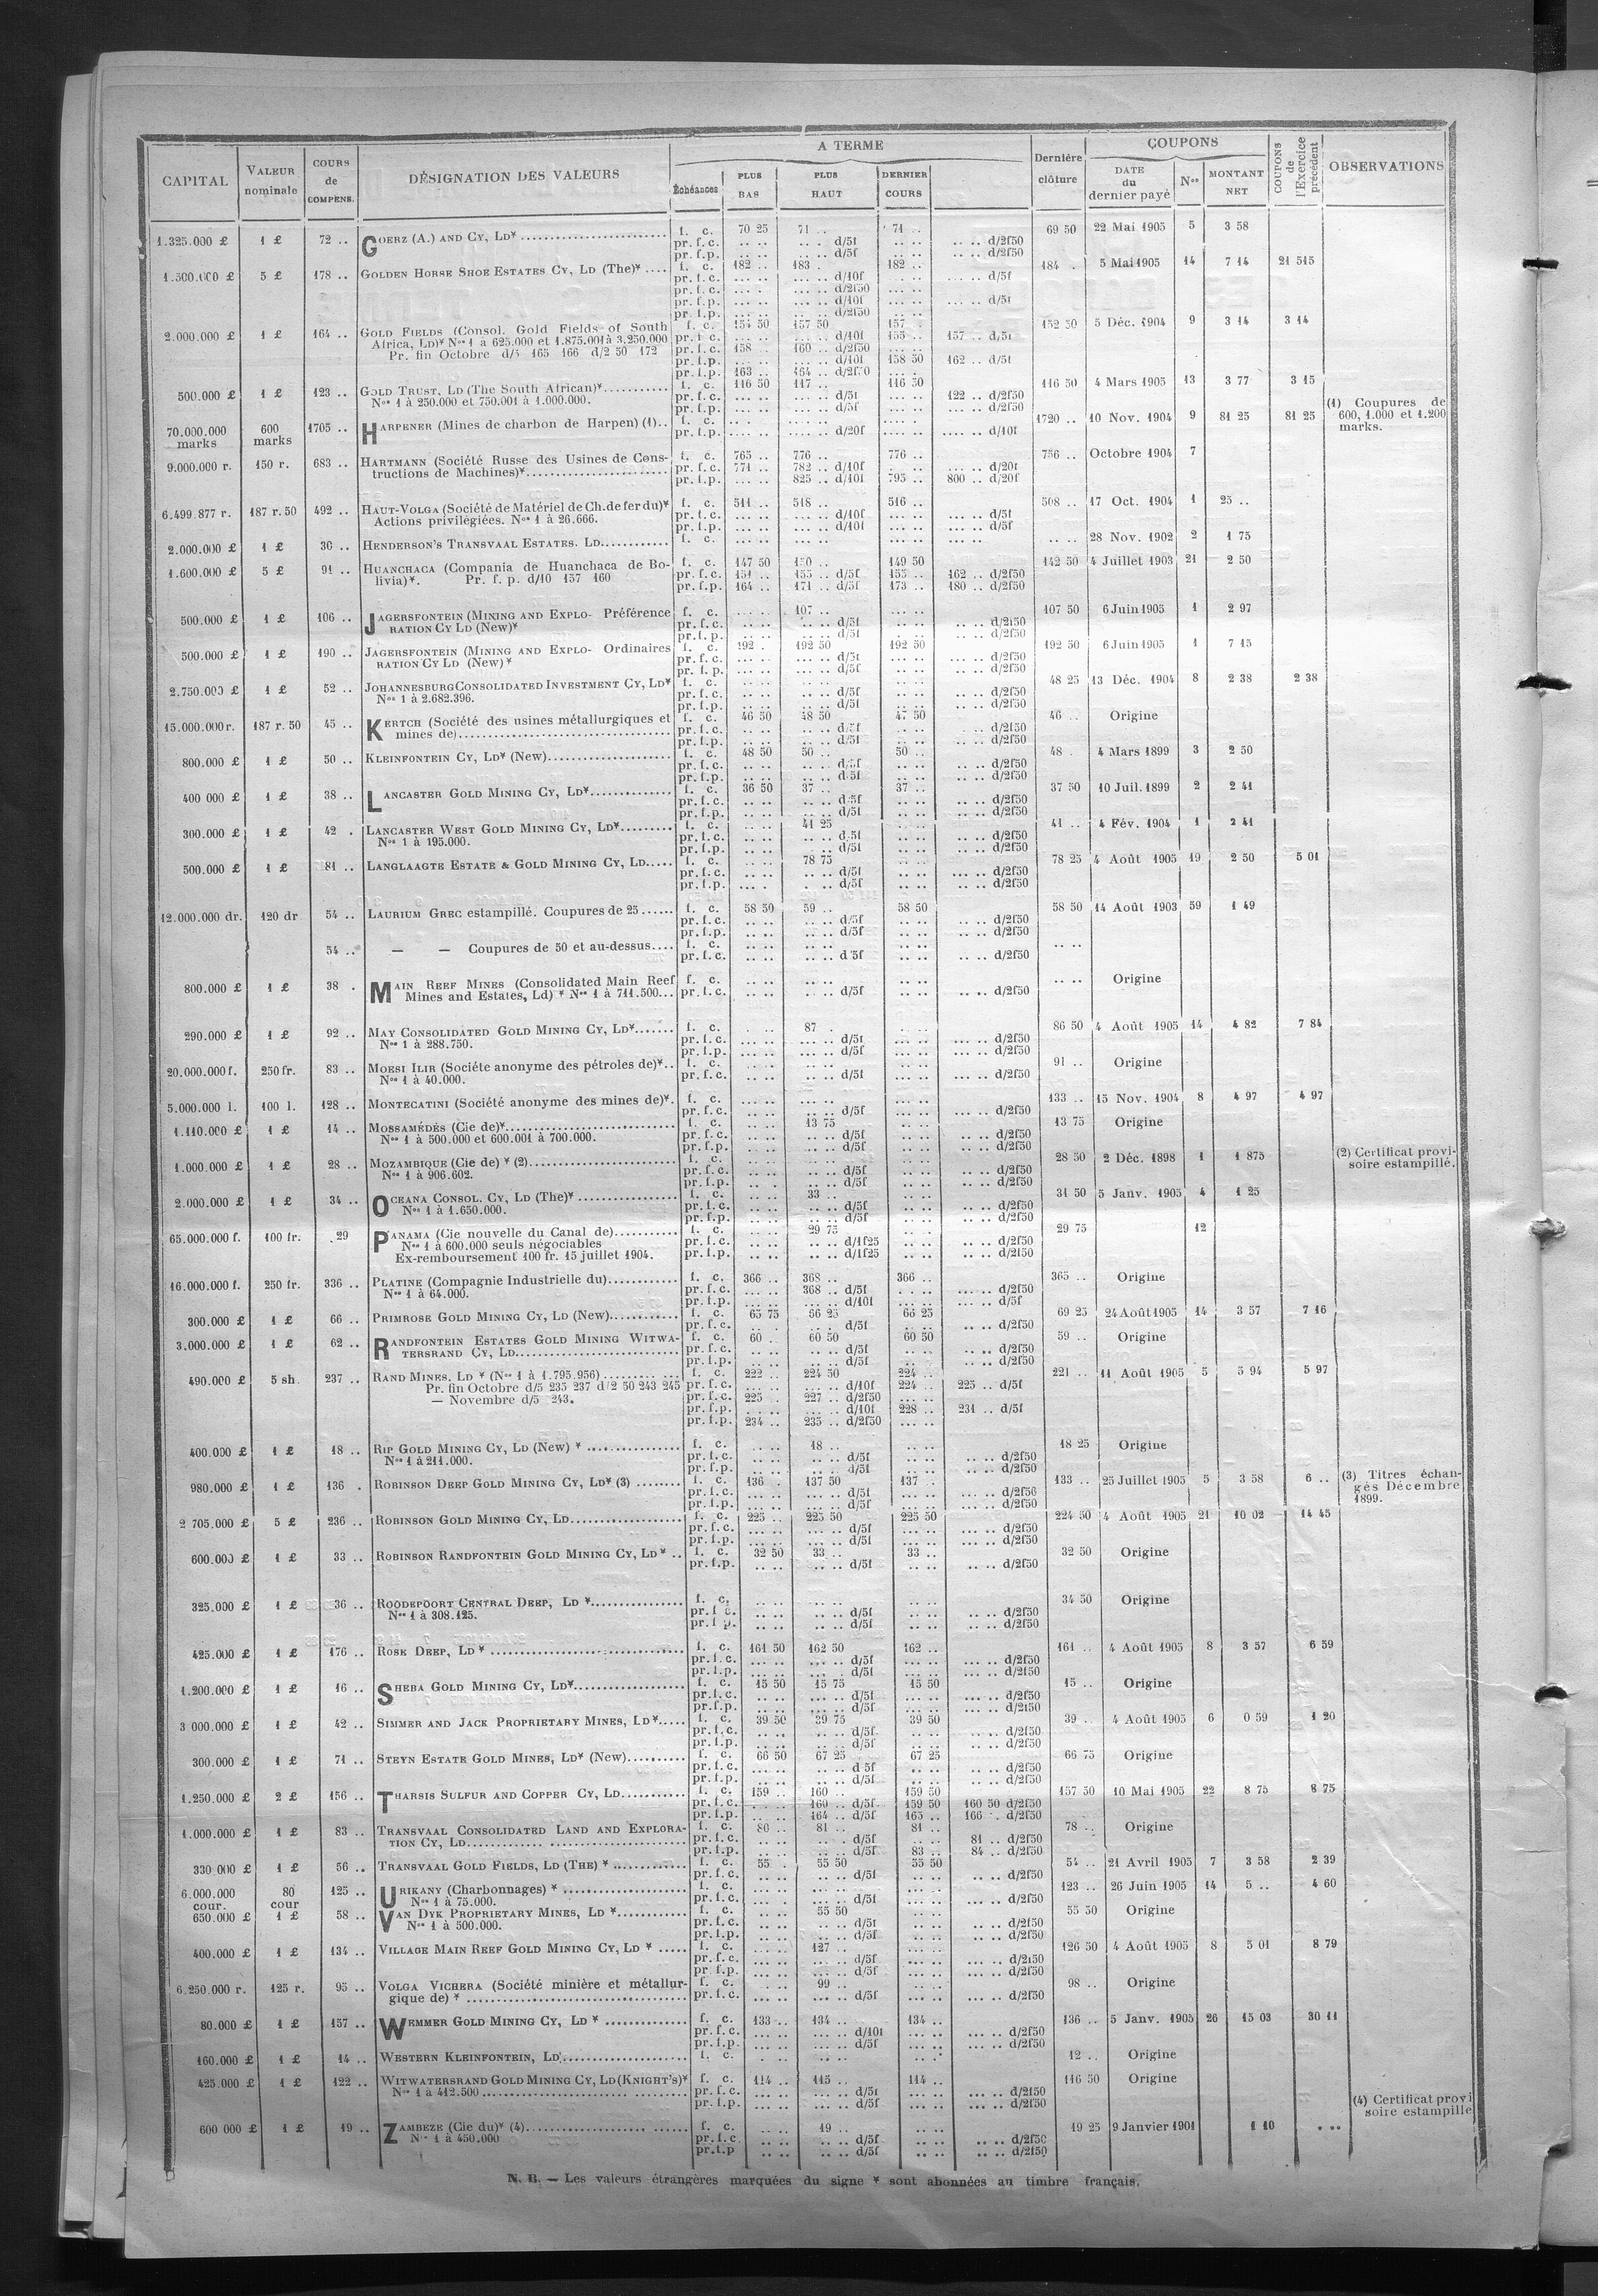 CAPITAL | VALEUR nominale | COURS de COMPENS. | DÉSIGNATION DES VALEURS | A TERME | Dernière clôture | COUPONS | COUPONS de l'Exercice précédent | OBSERVATIONS
Échéances | PLUS BAS | PLUS HAUT | DERNIER COURS | DATE du dernier payé | Nos | MONTANT NET
1.325.000 £ | 1 £ | 72 .. | GOERZ (A.) AND CY, LD¥ | f. c. | 70 25 | 71 .. | 71 .. | 69 50 | 22 Mai 1905 | 5 | 3 58
pr. f. c. | d/5f | d/2f50
pr. f. p. | d/5f | d/2f50
5 £ | 178 .. | GOLDEN HORSE SHOE ESTATES CY, LD (The)¥ | f. c. | 182 .. | 183 . | 182 .. | 184 . | 5 Mai 1905 | 14 | 7 14 | 21 515
pr. f. c. | d/10f | d/5f
pr. f. c. | d/2f50
pr. f. p. | d/10f | d/5f
pr. f. p. | d/2f50
2.000.000 £ | 1 £ | 164 .. | GOLD FIELDS (Consol. Gold Fields of South | f. c. | 157 50 | 157 | 5 Déc. 1904 | 9 | 3 14 | 3 14
Africa, LD)¥ Nos 1 à 625.000 et 1.875.001 à 3.250.000 | pr. f. c. | d/10f | 155 .. | 157 .. d/5f
Pr. fin Octobre d/5 165 166 d/2 50 172 | pr. f. c. | 158 .. | 160 .. d/2f50
pr. f. p. | d/10f | 158 50 | 162 .. d/5f
pr. f. p. | 163 .. | 164 .. d/2f50
500.000 £ | 1 £ | 123 .. | GOLD TRUST, LD (The South African)¥ | f. c. | 116 50 | 117 .. | 116 50 | 116 50 | 4 Mars 1905 | 13 | 3 77 | 3 15
Nos 1 à 250.000 et 750.001 à 1.000.000. | pr. f. c. | d/5f | 122 .. d/2f50
pr. f. p. | d/5f | d/2f50 | (1) Coupures de 600, 1.000 et 1.200 marks.
70.000.000 marks | 600 marks | 1705 .. | HARPENER (Mines de charbon de Harpen) (1) | f. c. | 1720 .. | 10 Nov. 1904 | 9 | 81 25 | 81 25
pr. f. p. | d/20f | d/10f
9.000.000 r. | 150 r. | 683 .. | HARTMANN (Société Russe des Usines de Cons- | f. c. | 765 .. | 776 .. | 776 .. | 756 .. | Octobre 1904 | 7
tructions de Machines)¥ | pr. f. c. | 771 .. | 782 .. d/10f | d/20f
pr. f. p. | 825 .. d/10f | 795 .. | 800 .. d/20f
6.499.877 r. | 187 r. 50 | 492 .. | HAUT-VOLGA (Société de Matériel de Ch. de fer du)¥ | f. c. | 511 .. | 518 .. | 516 .. | 508 .. | 17 Oct. 1904 | 1 | 25 ..
Actions privilégiées. Nos 1 à 26.666. | pr. f. c. | d/10f | d/5f
pr. f. p. | d/10f | d/5f
2.000.000 £ | 1 £ | 30 .. | HENDERSON'S TRANSVAAL ESTATES. LD | f. c. | 28 Nov. 1902 | 2 | 1 75
1.600.000 £ | 5 £ | 91 .. | HUANCHACA (Compania de Huanchaca de Bo- | f. c. | 147 50 | 150 .. | 149 50 | 142 50 | 4 Juillet 1903 | 21 | 2 50
livia)¥. Pr. f. p. d/10 157 160 | pr. f. c. | 151 .. | 155 .. d/5f | 155 .. | 162 .. d/2f50
pr. f. p. | 164 .. | 171 .. d/5f | 173 .. | 180 .. d/2f50
500.000 £ | 1 £ | 106 .. | JAGERSFONTEIN (MINING AND EXPLO- Préférence | f. c. | 107 .. | 107 50 | 6 Juin 1905 | 1 | 2 97
RATION CY LD (New)¥ | pr. f. c. | d/5f | d/2f50
pr. f. p. | d/5f | d/2f50
500.000 £ | 1 £ | 190 .. | JAGERSFONTEIN (MINING AND EXPLO- Ordinaires | f. c. | 192 . | 192 50 | 192 50 | 192 50 | 6 Juin 1905 | 1 | 7 15
RATION CY LD (New)¥ | pr. f. c. | d/5f | d/2f50
pr. f. p. | d/5f | d/2f50
2.750.000 £ | 1 £ | 52 .. | JOHANNESBURG CONSOLIDATED INVESTMENT CY, LD¥ | f. c. | 48 25 | 13 Déc. 1904 | 8 | 2 38 | 2 38
Nos 1 à 2.682.396. | pr. f. c. | d/5f | d/2f50
pr. f. p. | d/5f | d/2f50
15.000.000 r. | 187 r. 50 | 45 .. | KERTCH (Société des usines métallurgiques et | f. c. | 46 50 | 48 50 | 47 50 | 46 .. | Origine
mines de) | pr. f. c. | d/5f | d/2f50
pr. f. p. | d/5f | d/2f50
800.000 £ | 1 £ | 50 .. | KLEINFONTEIN CY, LD¥ (New) | f. c. | 48 50 | 50 .. | 50 .. | 48 . | 4 Mars 1899 | 3 | 2 50
pr. f. c. | d/5f | d/2f50
pr. f. p. | d/5f | d/2f50
400 000 £ | 1 £ | 38 .. | LANCASTER GOLD MINING CY, LD¥ | f. c. | 36 50 | 37 .. | 37 .. | 37 50 | 10 Juil. 1899 | 2 | 2 41
pr. f. c. | d/5f | d/2f50
pr. f. p. | d/5f | d/2f50
300.000 £ | 1 £ | 42 . | LANCASTER WEST GOLD MINING CY, LD¥ | f. c. | 41 25 | 41 .. | 4 Fév. 1904 | 1 | 2 41
Nos 1 à 195.000. | pr. f. c. | d/5f | d/2f50
pr. f. p. | d/5f | d/2f50
500.000 £ | 1 £ | 81 .. | LANGLAAGTE ESTATE & GOLD MINING CY, LD | f. c. | 78 75 | 78 25 | 4 Août 1905 | 19 | 2 50 | 5 01
pr. f. c. | d/5f | d/2f50
pr. f. p. | d/5f | d/2f50
12.000.000 dr. | 120 dr | 54 .. | LAURIUM GREC estampillé. Coupures de 25 | f. c. | 58 50 | 59 .. | 58 50 | 58 50 | 14 Août 1903 | 59 | 1 49
pr. f. c. | d/5f | d/2f50
pr. f. p. | d/5f | d/2f50
54 .. | — — Coupures de 50 et au-dessus | f. c.
pr. f. c. | d/5f | d/2f50
800.000 £ | 1 £ | 38 . | MAIN REEF MINES (Consolidated Main Reef | f. c. | Origine
Mines and Estates, Ld) ¥ Nos 1 à 711.500 | pr. f. c. | d/5f | d/2f50
290.000 £ | 1 £ | 92 .. | MAY CONSOLIDATED GOLD MINING CY, LD¥ | f. c. | 87 . | 86 50 | 4 Août 1905 | 14 | 4 82 | 7 84
Nos 1 à 288.750. | pr. f. c. | d/5f | d/2f50
pr. f. p. | d/5f | d/2f50
20.000.000 f. | 250 fr. | 83 .. | MOESI ILIR (Société anonyme des pétroles de)¥ | f. c. | 91 .. | Origine
Nos 1 à 40.000. | pr. f. c. | d/5f | d/2f50
5.000.000 l. | 100 l. | 128 .. | MONTECATINI (Société anonyme des mines de)¥ | f. c. | 133 .. | 15 Nov. 1904 | 8 | 4 97 | 4 97
pr. f. c. | d/5f | d/2f50
1.110.000 £ | 1 £ | 14 .. | MOSSAMÉDÈS (Cie de)¥ | f. c. | 13 75 | 13 75 | Origine
Nos 1 à 500.000 et 600.001 à 700.000. | pr. f. c. | d/5f | d/2f50
pr. f. p. | d/5f | d/2f50
1.000.000 £ | 1 £ | 28 .. | MOZAMBIQUE (Cie de) ¥ (2) | f. c. | 28 50 | 2 Déc. 1898 | 1 | 1 875 | (2) Certificat provi-soire estampillé.
Nos 1 à 906.602. | pr. f. c. | d/5f | d/2f50
pr. f. p. | d/5f | d/2f50
2.000.000 £ | 1 £ | 34 .. | OCEANA CONSOL. CY, LD (The)¥ | f. c. | 33 .. | 31 50 | 5 Janv. 1905 | 4 | 1 25
Nos 1 à 1.650.000. | pr. f. c. | d/5f | d/2f50
pr. f. p. | d/5f | d/2f50
65.000.000 f. | 100 fr. | 29 | PANAMA (Cie nouvelle du Canal de) | f. c. | 29 75 | 29 75 | 12
Nos 1 à 600.000 seuls négociables | pr. f. c. | d/1f25 | d/2f50
Ex-remboursement 100 fr. 15 juillet 1904. | pr. f. p. | d/1f25 | d/2f50
16.000.000 f. | 250 fr. | 336 .. | PLATINE (Compagnie Industrielle du) | f. c. | 366 .. | 368 .. | 366 .. | 365 .. | Origine
Nos 1 à 64.000. | pr. f. c. | 368 .. d/5f | d/2f50
pr. f. p. | d/10f | d/5f
300.000 £ | 1 £ | 66 .. | PRIMROSE GOLD MINING CY, LD (New) | f. c. | 65 75 | 66 25 | 66 25 | 69 25 | 24 Août 1905 | 14 | 3 57 | 7 16
pr. f. c. | d/5f | d/2f50
3.000.000 £ | 1 £ | 62 .. | RANDFONTEIN ESTATES GOLD MINING WITWA- | f. c. | 60 .. | 60 50 | 60 50 | 59 .. | Origine
TERSRAND CY, LD | pr. f. c. | d/5f | d/2f50
pr. f. p. | d/5f | d/2f50
490.000 £ | 5 sh. | 237 .. | RAND MINES. LD ¥ (Nos 1 à 1.795.956) | f. c. | 222 .. | 224 50 | 224 .. | 221 .. | 11 Août 1905 | 5 | 5 94 | 5 97
Pr. fin Octobre d/5 235 237 d/2 50 243 245 | pr. f. c. | d/10f | 224 .. | 225 .. d/5f
— Novembre d/5 243. | pr. f. c. | 225 .. | 227 .. d/2f50
pr. f. p. | d/10f | 228 .. | 231 .. d/5f
pr. f. p. | 234 .. | 235 .. d/2f50
400.000 £ | 1 £ | 18 .. | RIP GOLD MINING CY, LD (New) ¥ | f. c. | 18 .. | 18 25 | Origine
Nos 1 à 211.000. | pr. f. c. | d/5f | d/2f50
pr. f. p. | d/5f | d/2f50
980.000 £ | 1 £ | 136 . | ROBINSON DEEP GOLD MINING CY, LD¥ (3) | f. c. | 136 . | 137 50 | 137 .. | 133 .. | 25 Juillet 1905 | 5 | 3 58 | 6 .. | (3) Titres échan-gés Décembre 1899.
pr. f. c. | d/5f | d/2f50
pr. f. p. | d/5f | d/2f50
2 705.000 £ | 5 £ | 236 .. | ROBINSON GOLD MINING CY, LD | f. c. | 225 .. | 225 50 | 225 50 | 224 50 | 4 Août 1905 | 21 | 10 02 | 14 45
pr. f. c. | d/5f | d/2f50
pr. f. p. | d/5f | d/2f50
600.000 £ | 1 £ | 33 .. | ROBINSON RANDFONTEIN GOLD MINING CY, LD ¥ | f. c. | 32 50 | 33 .. | 33 .. | 32 50 | Origine
pr. f. p. | d/5f | d/2f50
325.000 £ | 1 £ | 36 .. | ROODEPOORT CENTRAL DEEP, LD ¥ | f. c. | 34 50 | Origine
Nos 1 à 308.125. | pr. f. c. | d/5f | d/2f50
pr. f. p. | d/5f | d/2f50
425.000 £ | 1 £ | 176 .. | ROSE DEEP, LD ¥ | f. c. | 161 50 | 162 50 | 162 .. | 161 .. | 4 Août 1905 | 8 | 3 57 | 6 59
pr. f. c. | d/5f | d/2f50
pr. f. p. | d/5f | d/2f50
1.200.000 £ | 1 £ | 16 .. | SHEBA GOLD MINING CY, LD¥ | f. c. | 15 50 | 15 75 | 15 50 | 15 .. | Origine
pr. f. c. | d/5f | d/2f50
pr. f. p. | d/5f | d/2f50
3 000.000 £ | 1 £ | 42 .. | SIMMER AND JACK PROPRIETARY MINES, LD¥ | f. c. | 39 50 | 39 75 | 39 50 | 39 .. | 4 Août 1905 | 6 | 0 59 | 1 20
pr. f. c. | d/5f | d/2f50
pr. f. p. | d/5f | d/2f50
300.000 £ | 1 £ | 71 .. | STEYN ESTATE GOLD MINES, LD¥ (New) | f. c. | 66 50 | 67 25 | 67 25 | 66 75 | Origine
pr. f. c. | d/5f | d/2f50
pr. f. p. | d/5f | d/2f50
1.250.000 £ | 2 £ | 156 .. | THARSIS SULFUR AND COPPER CY, LD | f. c. | 159 .. | 160 .. | 159 50 | 157 50 | 10 Mai 1905 | 22 | 8 75 | 8 75
pr. f. c. | 160 .. d/5f | 159 50 | 160 50 d/2f50
pr. f. p. | 164 .. d/5f | 165 .. | 166 .. d/2f50
1.000.000 £ | 1 £ | 83 .. | TRANSVAAL CONSOLIDATED LAND AND EXPLORA- | f. c. | 80 .. | 81 .. | 81 .. | 78 .. | Origine
TION CY, LD | pr. f. c. | d/5f | 81 .. d/2f50
pr. f. p. | d/5f | 83 .. | 84 .. d/2f50
330 000 £ | 1 £ | 56 .. | TRANSVAAL GOLD FIELDS, LD (THE) ¥ | f. c. | 55 . | 55 50 | 55 50 | 54 .. | 21 Avril 1905 | 7 | 3 58 | 2 39
pr. f. c. | d/5f | d/2f50
6.000.000 cour. | 80 cour | 125 .. | URIKANY (Charbonnages) ¥ | f. c. | 123 .. | 26 Juin 1905 | 14 | 5 .. | 4 60
Nos 1 à 75.000. | pr. f. c. | d/5f | d/2f50
650.000 £ | 1 £ | 58 .. | VAN DYK PROPRIETARY MINES, LD ¥ | f. c. | 55 50 | 55 50 | Origine
Nos 1 à 500.000. | pr. f. c. | d/5f | d/2f50
pr. f. p. | d/5f | d/2f50
400.000 £ | 1 £ | 134 .. | VILLAGE MAIN REEF GOLD MINING CY, LD ¥ | f. c. | 127 .. | 126 50 | 4 Août 1905 | 8 | 5 01 | 8 79
pr. f. c. | d/5f | d/2f50
pr. f. p. | d/5f | d/2f50
6.250.000 r. | 125 r. | 95 .. | VOLGA VICHERA (Société minière et métallur- | f. c. | 99 .. | 98 .. | Origine
gique de) ¥ | pr. f. c. | d/5f | d/2f50
80.000 £ | 1 £ | 157 .. | WEMMER GOLD MINING CY, LD ¥ | f. c. | 133 .. | 134 .. | 134 .. | 136 .. | 5 Janv. 1905 | 26 | 15 03 | 30 11
pr. f. c. | d/10f | d/2f50
pr. f. p. | d/5f | d/2f50
160.000 £ | 1 £ | 14 .. | WESTERN KLEINFONTEIN, LD | f. c. | 12 .. | Origine
425.000 £ | 1 £ | 122 .. | WITWATERSRAND GOLD MINING CY, LD (KNIGHT'S)¥ | f. c. | 114 .. | 115 .. | 114 .. | 116 50 | Origine
Nos 1 à 412.500 | pr. f. c. | d/5f | d/2f50
pr. f. p. | d/5f | d/2f50 | (4) Certificat provi soire estampillé
600 000 £ | 1 £ | 19 .. | ZAMBEZE (Cie du)¥ (4) | f. c. | 19 .. | 19 25 | 9 Janvier 1901 | 1 10
Nos 1 à 450.000 | pr. f. c. | d/5f | d/2f50
pr. f. p | d/5f | d/2f50
N. B. — Les valeurs étrangères marquées du signe ¥ sont abonnées au timbre français.